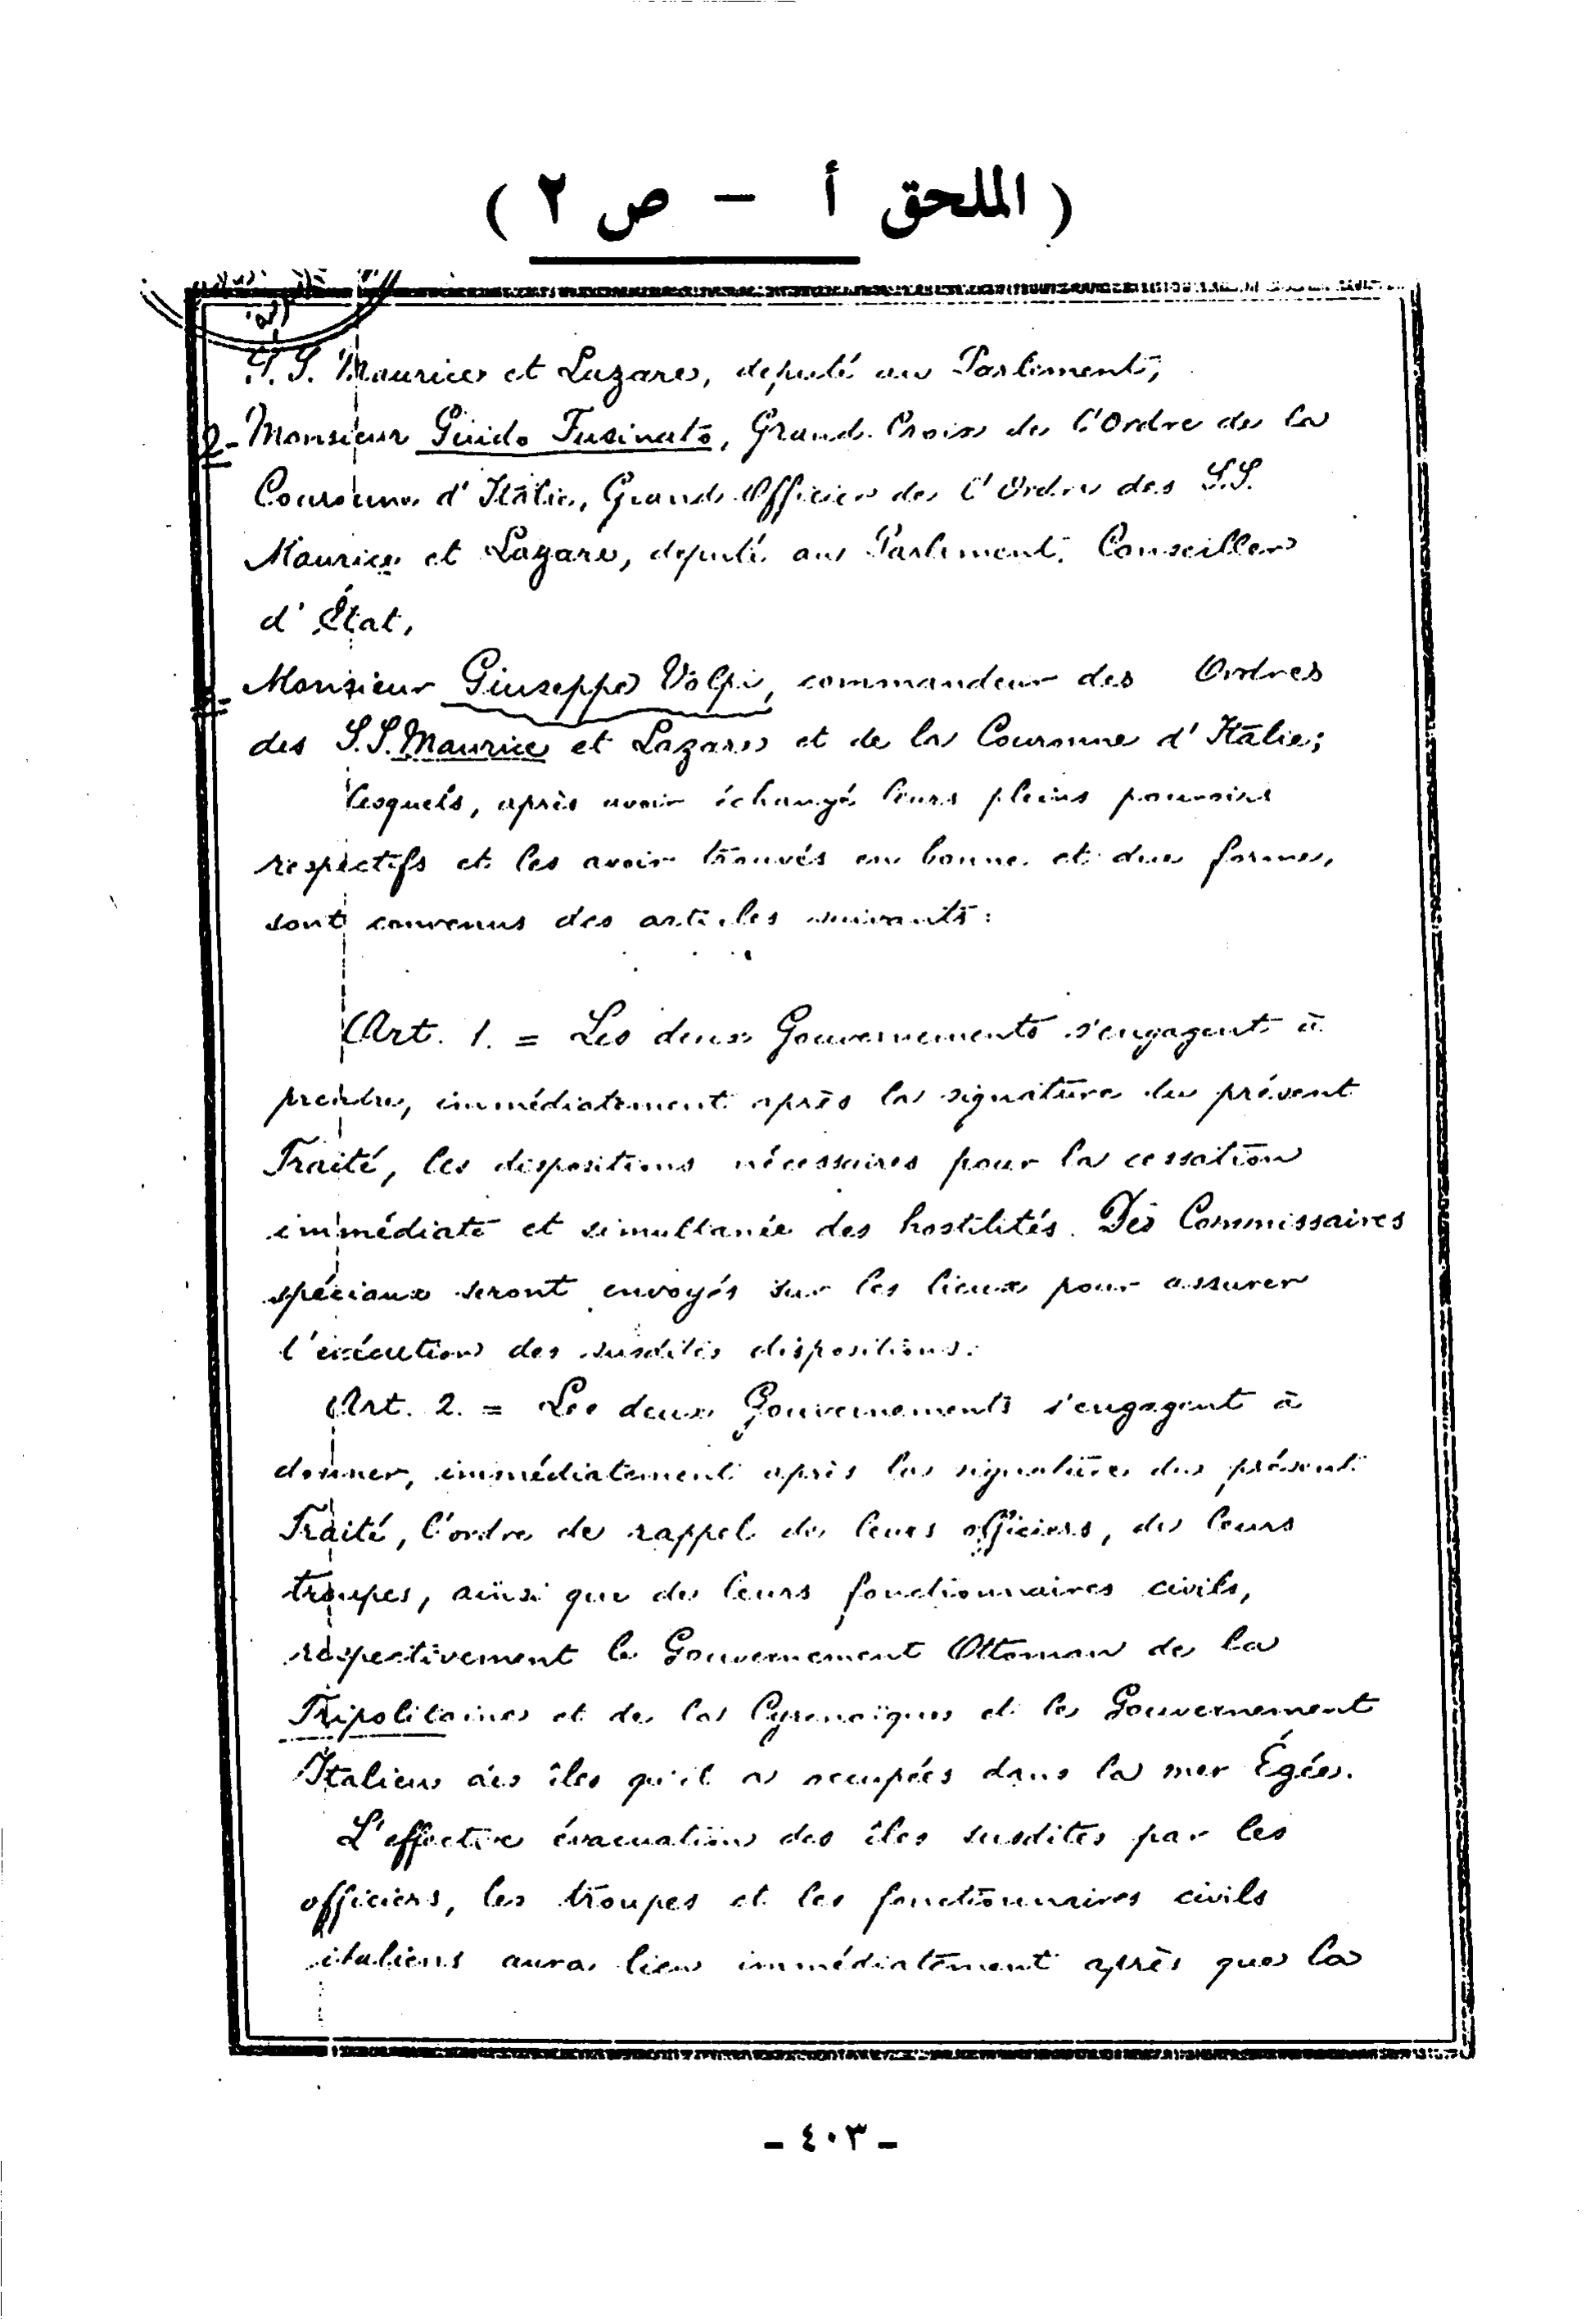 ( الملحق أ – ص ٢ )
S. S. Maurice et Lazare, deputé au Parlement;
2- Monsieur Guido Fusinato, Grand. Croix de l'Ordre de la
Couronne d'Italie, Grand Officier de l'Ordre des S.S.
Maurice et Lazare, deputé au Parlement. Conseiller
d'État,
Monsieur Giuseppe Volpi, commandeur des Ordres
des S.S. Maurice et Lazare et de la Couronne d'Italie;
lesquels, après avoir échangé leurs pleins pouvoirs
respectifs et les avoir trouvés en bonne et due forme,
sont convenus des articles suivants:
Art. 1. = Les deux Gouvernements s'engagent à
prendre, immédiatement après la signature du présent
Traité, les dispositions nécessaires pour la cessation
immédiate et simultanée des hostilités. Des Commissaires
spéciaux seront envoyés sur les lieux pour assurer
l'exécution des susdites dispositions.
Art. 2. = Les deux Gouvernements s'engagent à
donner, immédiatement après la signature du présent
Traité, l'ordre de rappel de leurs officiers, de leurs
troupes, ainsi que de leurs fonctionnaires civils,
respectivement le Gouvernement Ottoman de la
Tripolitaine et de la Cyrenaïque et le Gouvernement
Italien des îles qu'il a occupées dans la mer Égée.
L'effective évacuation des îles susdites par les
officiers, les troupes et les fonctionnaires civils
italiens aura lieu immédiatement après que la
- ٤٠٣ -